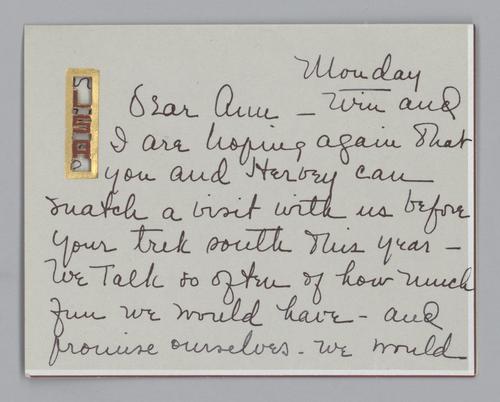 Monday
Dear Ann - Win and
I are hoping again that
you and Hervey can
snatch a visit with us before
your trek south this year -
We Talk so often of how much
fun we would have - and
promise ourselves. We would